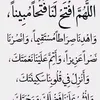 اللَّهُمَّ افْتَحْ لَنَا فَتْحًا مُبِينًا،
وَاهْدِنَا صِرَاطًا مُسْتَقِيمًا، وَانْصُرْنَا
نَصْرًا عَزِيزًا، وَأَتِمَّ عَلَيْنَا نِعْمَتَكَ،
وَأَنْزِلْ فِي قُلُوبِنَا سَكِينَتَكَ،